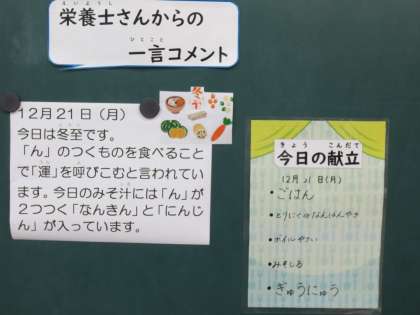 栄養士さんからの
一言コメント
12月21日（月）
今日は冬至です。
「ん」のつくものを食べること
で「運」を呼びこむと言われてい
ます。今日のみそ汁には「ん」が
2つつく「なんきん」と「にんじ
ん」が入っています。
冬至
今日の献立
12月21日(月)
・ごはん
・とりにくのなんばんやき
・ボイルやさい
・みそしる
・ぎゅうにゅう